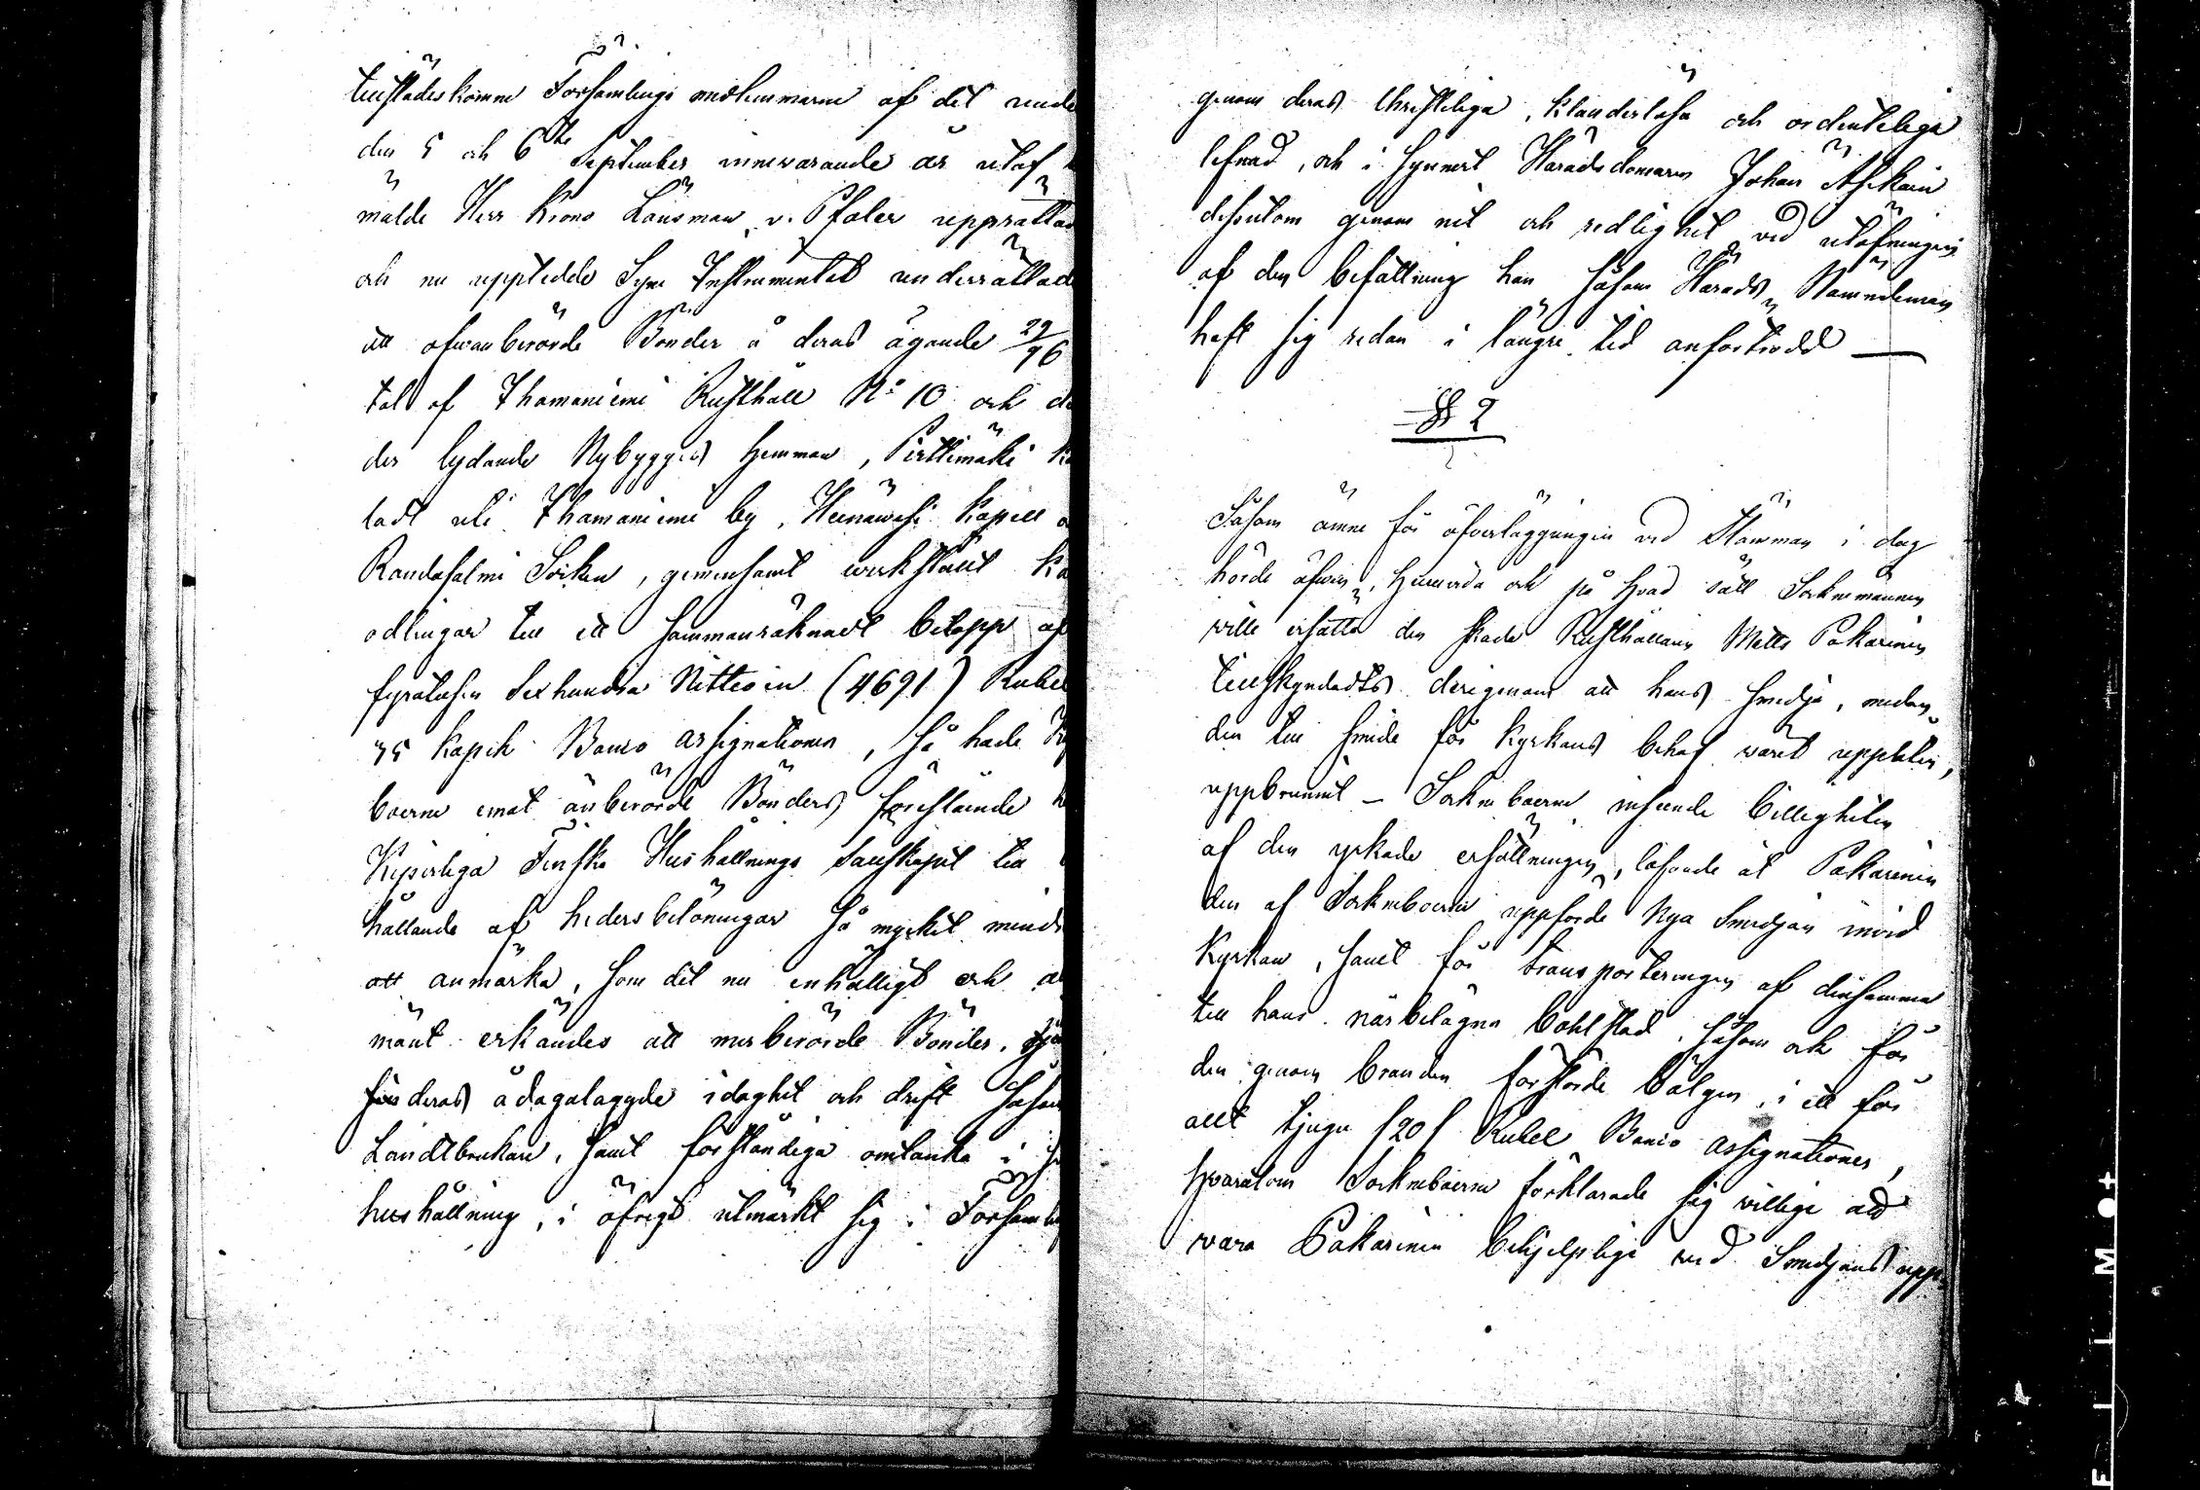 tillstädeskomne Församlings medlemmarne af det unde
den 5 och 6te September innevarande år utaf
mälde Herr Krono Länsman v. Pfaler upprättad
och nu uppledde Syne Instrumentet underrättade
att ofvanberörde Bönder å deras ägande 29/96
tal af Ihamaniemi Rusthåll No 10 och de
der lydande Nybygges hemman, Pirttimäki
ladt uti Ihamaniemi by, Heinäwesi Kapell o
Randasalmi Socken, gemensamt werkstält
odlingar till ett sammanräknadt belopp af
fyratusen Sexhundra Nittioen (4691) Rubel
75 Kopek Banco Assignationer, så hade
boerne emot änberörde Bönders föreslående
Kejserliga Finska Hushållnings Sällskapet till
hållande af hedersbelöningar så mycket mindr
att anmärka, som det nu enhälligt och al
mänt erkändes att merberörde Bönder,
för deras ådagalaggde idoghet och drift såsom
Landtbrukare, samt förståndiga omtanka i
hushållning, i öfrigt utmärkt sig i Församli
genom deras Christeliga, klanderlösa och ordenteliga
lefnad, och i synnert Häradsdomaren Johan Asikain
dessutom genom nit och redlighet vid utöfningen
af den befattning han såsom Härads Nämndeman
haft sig redan i längre tid anförtrodd —
§ 2
Såsom ämne för öfverläggningen vid Stämman i dag
hörde äfven, huruvida och på hvad sätt Socknemännen
ville ersätta den skada Rusthållaren Matts Pakarinen
tillskyndadts derigenom att hans smedja, medan
den till smide för Kyrkans behof varit uppläten,
uppbrunnit – Socknboerne, inseende billigheten
af den yrkade ersättningen, lofvade åt Pakarinen
den af Socknboerne uppförde Nya Smedjan invid
Kyrkan, samt för transporteringen af densamma
till hans närbelägna bohlstad, såsom ock för
den genom branden förstörde bälgen, i ett för
allt tjugu /20/ Rubel Banco Assignationer,
hvarutom Socknboerne förklarade sig villige att
wara Pakarinen behjelplige vid Smedjans upp-